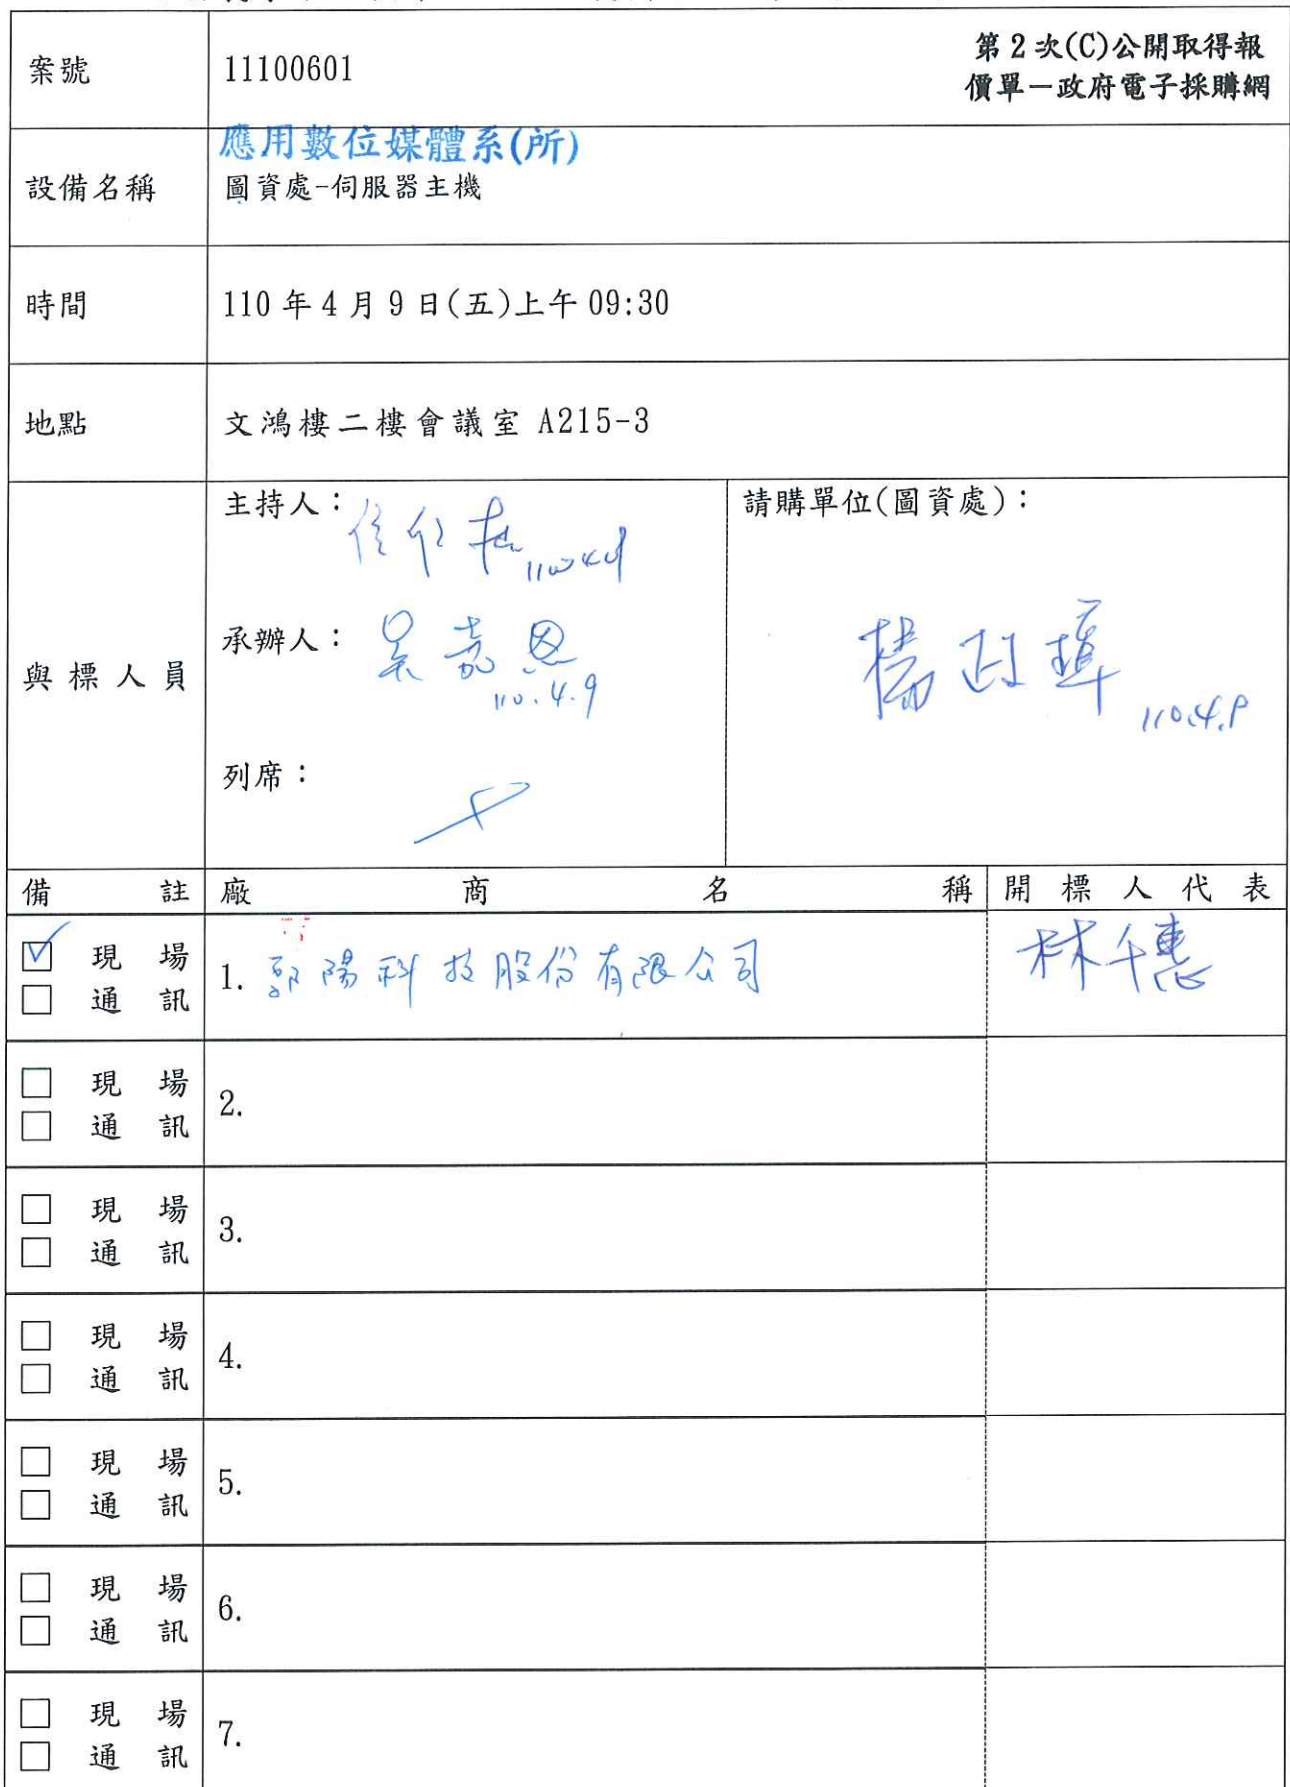 案號 11100601
第2次(C)公開取得報
價單－政府電子採購網
應用數位媒體系(所)
設備名稱 圖資處-伺服器主機
時間 110年4月9日(五)上午09:30
地點 文鴻樓二樓會議室 A215-3
與標人員
主持人：
承辦人：吳嘉恩
110.4.9
列席：
請購單位(圖資處)：
楊政璋
110.4.9
備註 廠商名稱 開標人代表
現場
通訊
1. 郭陽科技股份有限公司 林千惠
現場
通訊
2.
現場
通訊
3.
現場
通訊
4.
現場
通訊
5.
現場
通訊
6.
現場
通訊
7.